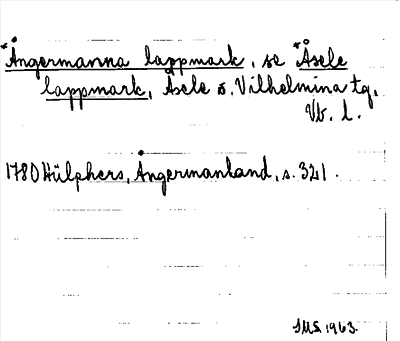 *Ångermanna lappmark, se *Åsele
lappmark, Åsele o. Vilhelmina tg,
Vb. l.
1780 Hülphers, Ångermanland, s. 321.
SMS 1963.